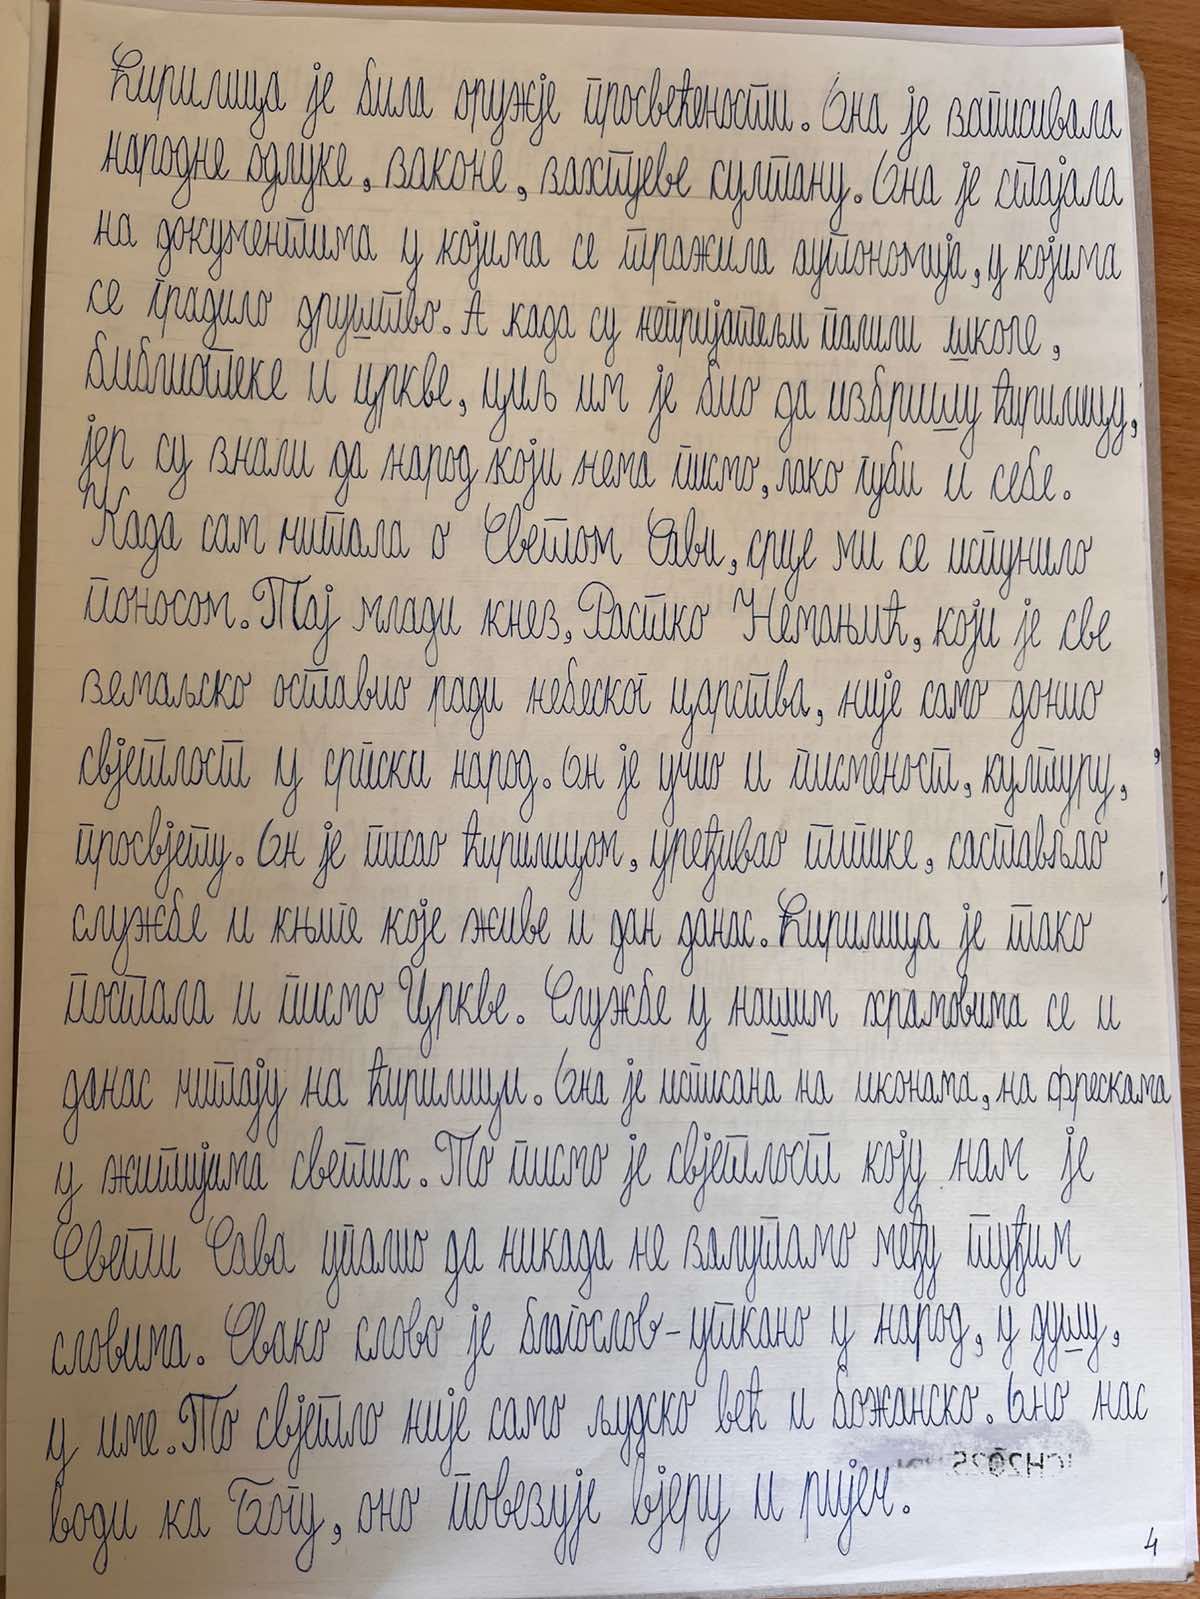 Ћирилица је била оружје просвећености. Она је записивала
народне одлуке, законе, захтјеве султану. Она је стајала
на документима у којима се тражила аутономија, у којима
се градило друштво. А када су непријатељи палили школе,
библиотеке и цркве, циљ им је био да избришу ћирилицу,
јер су знали да народ који нема писмо, лако губи и себе.
Када сам читала о Светом Сави, срце ми се испунило
поносом. Тај млади кнез, Растко Немањић, који је све
земаљско оставио ради небеског царства, није само донио
свјетлост у српски народ. Он је учио и писмености, културу,
просвјету. Он је писао ћирилицом, уређивао типике, састављао
службе и књиге које живе и дан данас. Ћирилица је тако
постала и писмо Цркве. Службе у нашим храмовима се и
данас читају на ћирилици. Она је исписана на иконама, на фрескама
у житијама светих. То писмо је свјетлост коју нам је
Свети Сава упалио да никада не залутамо међу туђим
словима. Свако слово је благослов-уткано у народ, у душу,
у име. То свјетло није само људско већ и божанско. Оно нас
води ка Богу, оно повезује вјеру и ријеч.
4